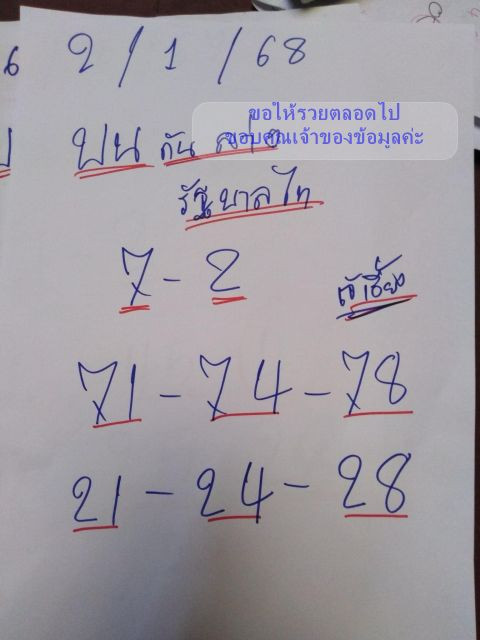 2 / 1 / 68
ขอให้รวยตลอดไป
ขอบคุณเจ้าของข้อมูลค่ะ
บน
รัฐบาลไท
7 - 2
เจ๊เฮี้ยง
71 - 74 - 78
21 - 24 - 28